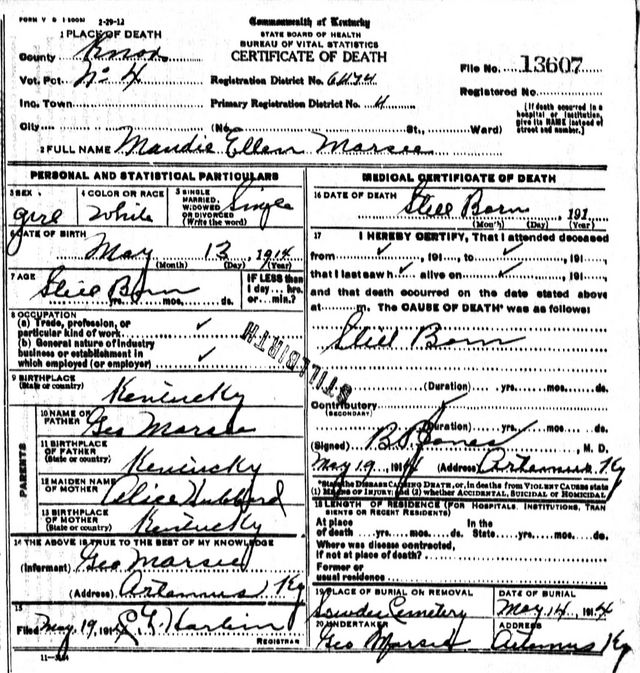 FORM V S 1 500M 2-29-12
Commonwealth of Kentucky
STATE BOARD OF HEALTH
BUREAU OF VITAL STATISTICS
CERTIFICATE OF DEATH
1 PLACE OF DEATH
County Knox
Vot. Pct. No 4
Inc. Town
City
Registration District No. 6474
Primary Registration District No. 4
(No. St., Ward)
File No. 13607
Registered No.
[If death occurred in a hospital or institution, give its NAME instead of street and number.]
2 FULL NAME Maudie Ellen Marsee
PERSONAL AND STATISTICAL PARTICULARS
3 SEX girl
4 COLOR OR RACE White
5 SINGLE MARRIED, WIDOWED OR DIVORCED (Write the word) Single
6 DATE OF BIRTH May 13, 1914
(Month) (Day) (Year)
7 AGE Still Born
yrs. mos. ds.
IF LESS than 1 day... hrs. or... min.?
8 OCCUPATION
(a) Trade, profession, or
particular kind of work
(b) General nature of industry
business or establishment in
which employed (or employer)
STILLBIRTH
9 BIRTHPLACE
(State or country) Kentucky
PARENTS
10 NAME OF FATHER Geo Marsee
11 BIRTHPLACE OF FATHER
(State or country) Kentucky
12 MAIDEN NAME OF MOTHER Alice Hubbard
13 BIRTHPLACE OF MOTHER
(State or country) Kentucky
14 THE ABOVE IS TRUE TO THE BEST OF MY KNOWLEDGE
(Informant) Geo Marsee
(Address) Artemus Ky
15
Filed May 19, 1914
REGISTRAR
MEDICAL CERTIFICATE OF DEATH
16 DATE OF DEATH Still Born, 191
(Month) (Day) (Year)
17 I HEREBY CERTIFY, That I attended deceased
from, 191, to, 191,
that I last saw h alive on, 191,
and that death occurred on the date stated above
at m. The CAUSE OF DEATH* was as follows:
Still Born
(Duration) yrs. mos. ds.
Contributory
(SECONDARY)
(Duration) yrs. mos. ds.
(Signed) Jones, M. D.
May 19, 1914 (Address) Artemus Ky
*State the DISEASE CAUSING DEATH, or, in deaths from VIOLENT CAUSES state
(1) MEANS OF INJURY; and (2) whether ACCIDENTAL, SUICIDAL or HOMICIDAL
18 LENGTH OF RESIDENCE (FOR HOSPITALS, INSTITUTIONS, TRANSIENTS OR RECENT RESIDENTS)
At place of death yrs. mos. ds. In the State yrs. mos. ds.
Where was disease contracted,
if not at place of death?
Former or
usual residence
19 PLACE OF BURIAL OR REMOVAL
Cemetery
DATE OF BURIAL
May 14, 1914
20 UNDERTAKER
Geo Marsee
ADDRESS
Artemus Ky